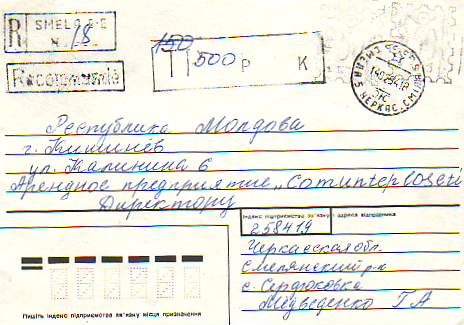 R SMELA 5-E
N. 18
Recommandé
150
500 Р К
СМЕЛА 5 ЧЕРКАС.
Республика Молдова
г. Кишинёв
ул. Калинина 6
Арендное предприятие „Comunteploseti
Директору
Індекс підприємства зв'язку і адреса відправника
258419
Черкасская обл.
Смелянский р-н
с. Сердюковка
Медведенко Г А
Пишіть індекс підприємства зв'язку місця призначення